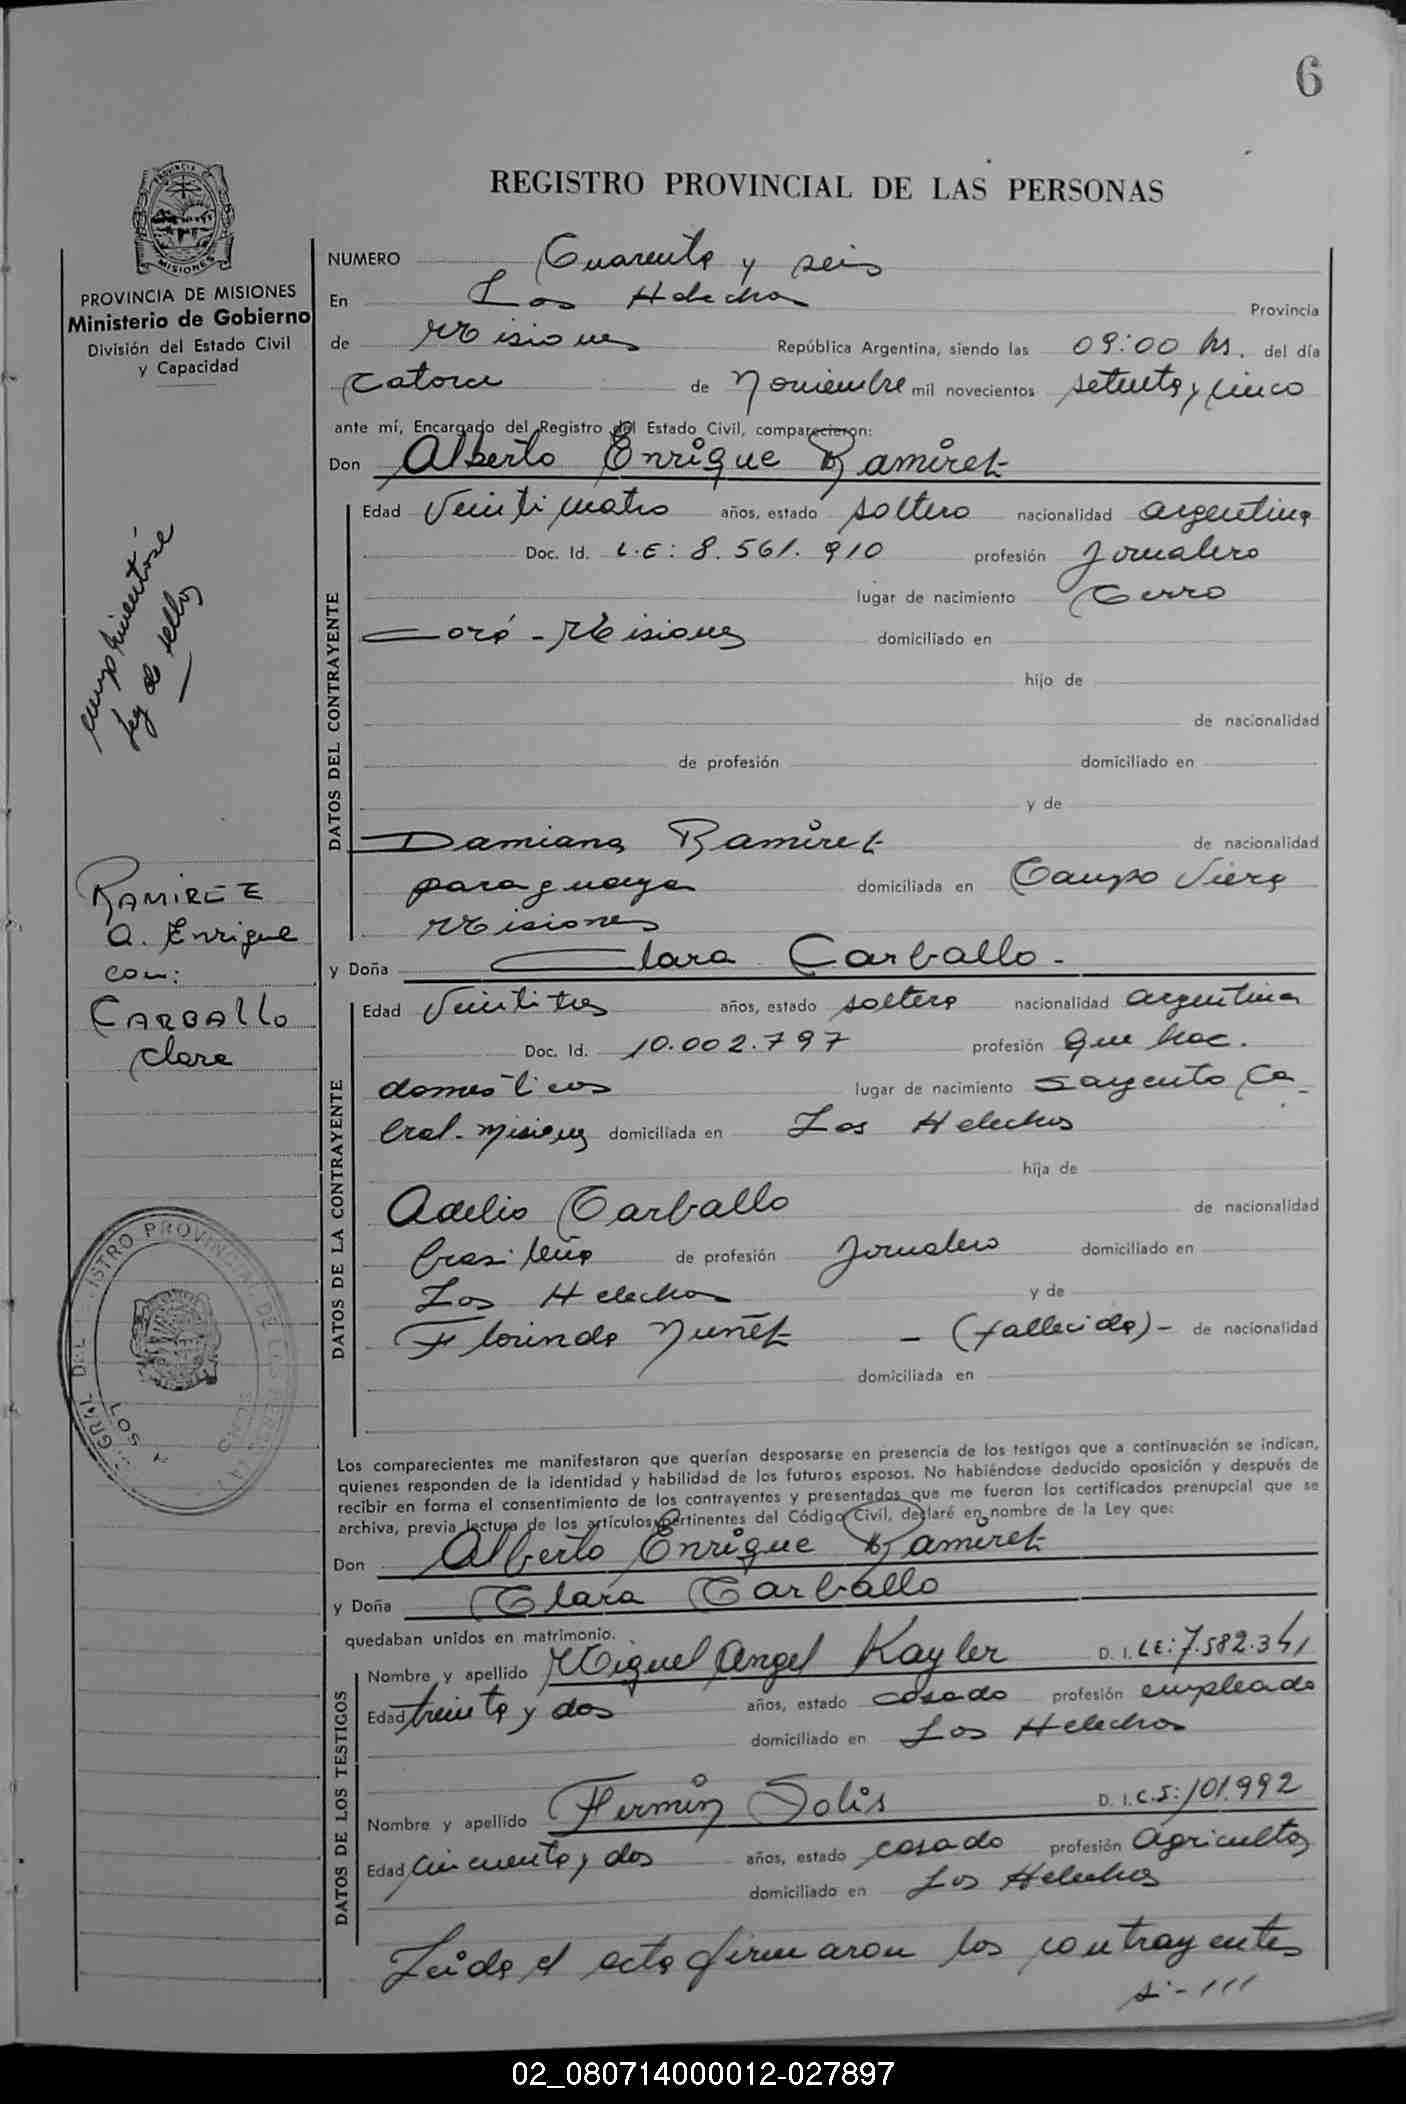 6
REGISTRO PROVINCIAL DE LAS PERSONAS
PROVINCIA DE MISIONES
Ministerio de Gobierno
División del Estado Civil
y Capacidad
NUMERO Cuarenta y seis
En Los Helechos Provincia
de Misiones República Argentina, siendo las 09:00 hs. del día
Catorce de Noviembre mil novecientos setenta y cinco
ante mí, Encargado del Registro del Estado Civil, comparecieron:
Don Alberto Enrique Ramirez
DATOS DEL CONTRAYENTE
Edad Veinticuatro años, estado soltero nacionalidad argentina
Doc. Id. L.E: 8.561.910 profesión Jornalero
lugar de nacimiento Cerro
Corá - Misiones domiciliado en
hijo de
de nacionalidad
de profesión domiciliado en
y de
Damiana Ramirez de nacionalidad
paraguaya domiciliada en Campo Viera
Misiones
y Doña Clara Carballo -
DATOS DE LA CONTRAYENTE
Edad Veintitres años, estado soltera nacionalidad argentina
Doc. Id. 10.002.797 profesión Que hac.
domésticos lugar de nacimiento Sargento Ca-
bral - Misiones domiciliada en Los Helechos
hija de
Adelio Carballo de nacionalidad
brasileña de profesión Jornalero domiciliado en
Los Helechos y de
Florinda Nuñez - (fallecida) - de nacionalidad
domiciliada en
Los comparecientes me manifestaron que querían desposarse en presencia de los testigos que a continuación se indican,
quienes responden de la identidad y habilidad de los futuros esposos. No habiéndose deducido oposición y después de
recibir en forma el consentimiento de los contrayentes y presentados que me fueron los certificados prenupcial que se
archiva, previa lectura de los artículos pertinentes del Código Civil, declaré en nombre de la Ley que:
Don Alberto Enrique Ramirez
y Doña Clara Carballo
quedaban unidos en matrimonio.
DATOS DE LOS TESTIGOS
Nombre y apellido Miguel Angel Kayler D. I. LE: 7.582.341
Edad treinta y dos años, estado casado profesión empleado
domiciliado en Los Helechos
Nombre y apellido Fermin Solis D. I. C.S: 101.992
Edad cincuenta y dos años, estado casado profesión Agricultor
domiciliado en Los Helechos
Leida el acta firmaron los contrayentes
si-///
cumplimentóse
ley de sellos
RAMIREZ
A. Enrique
con:
CARBALLO
Clara
02_080714000012-027897